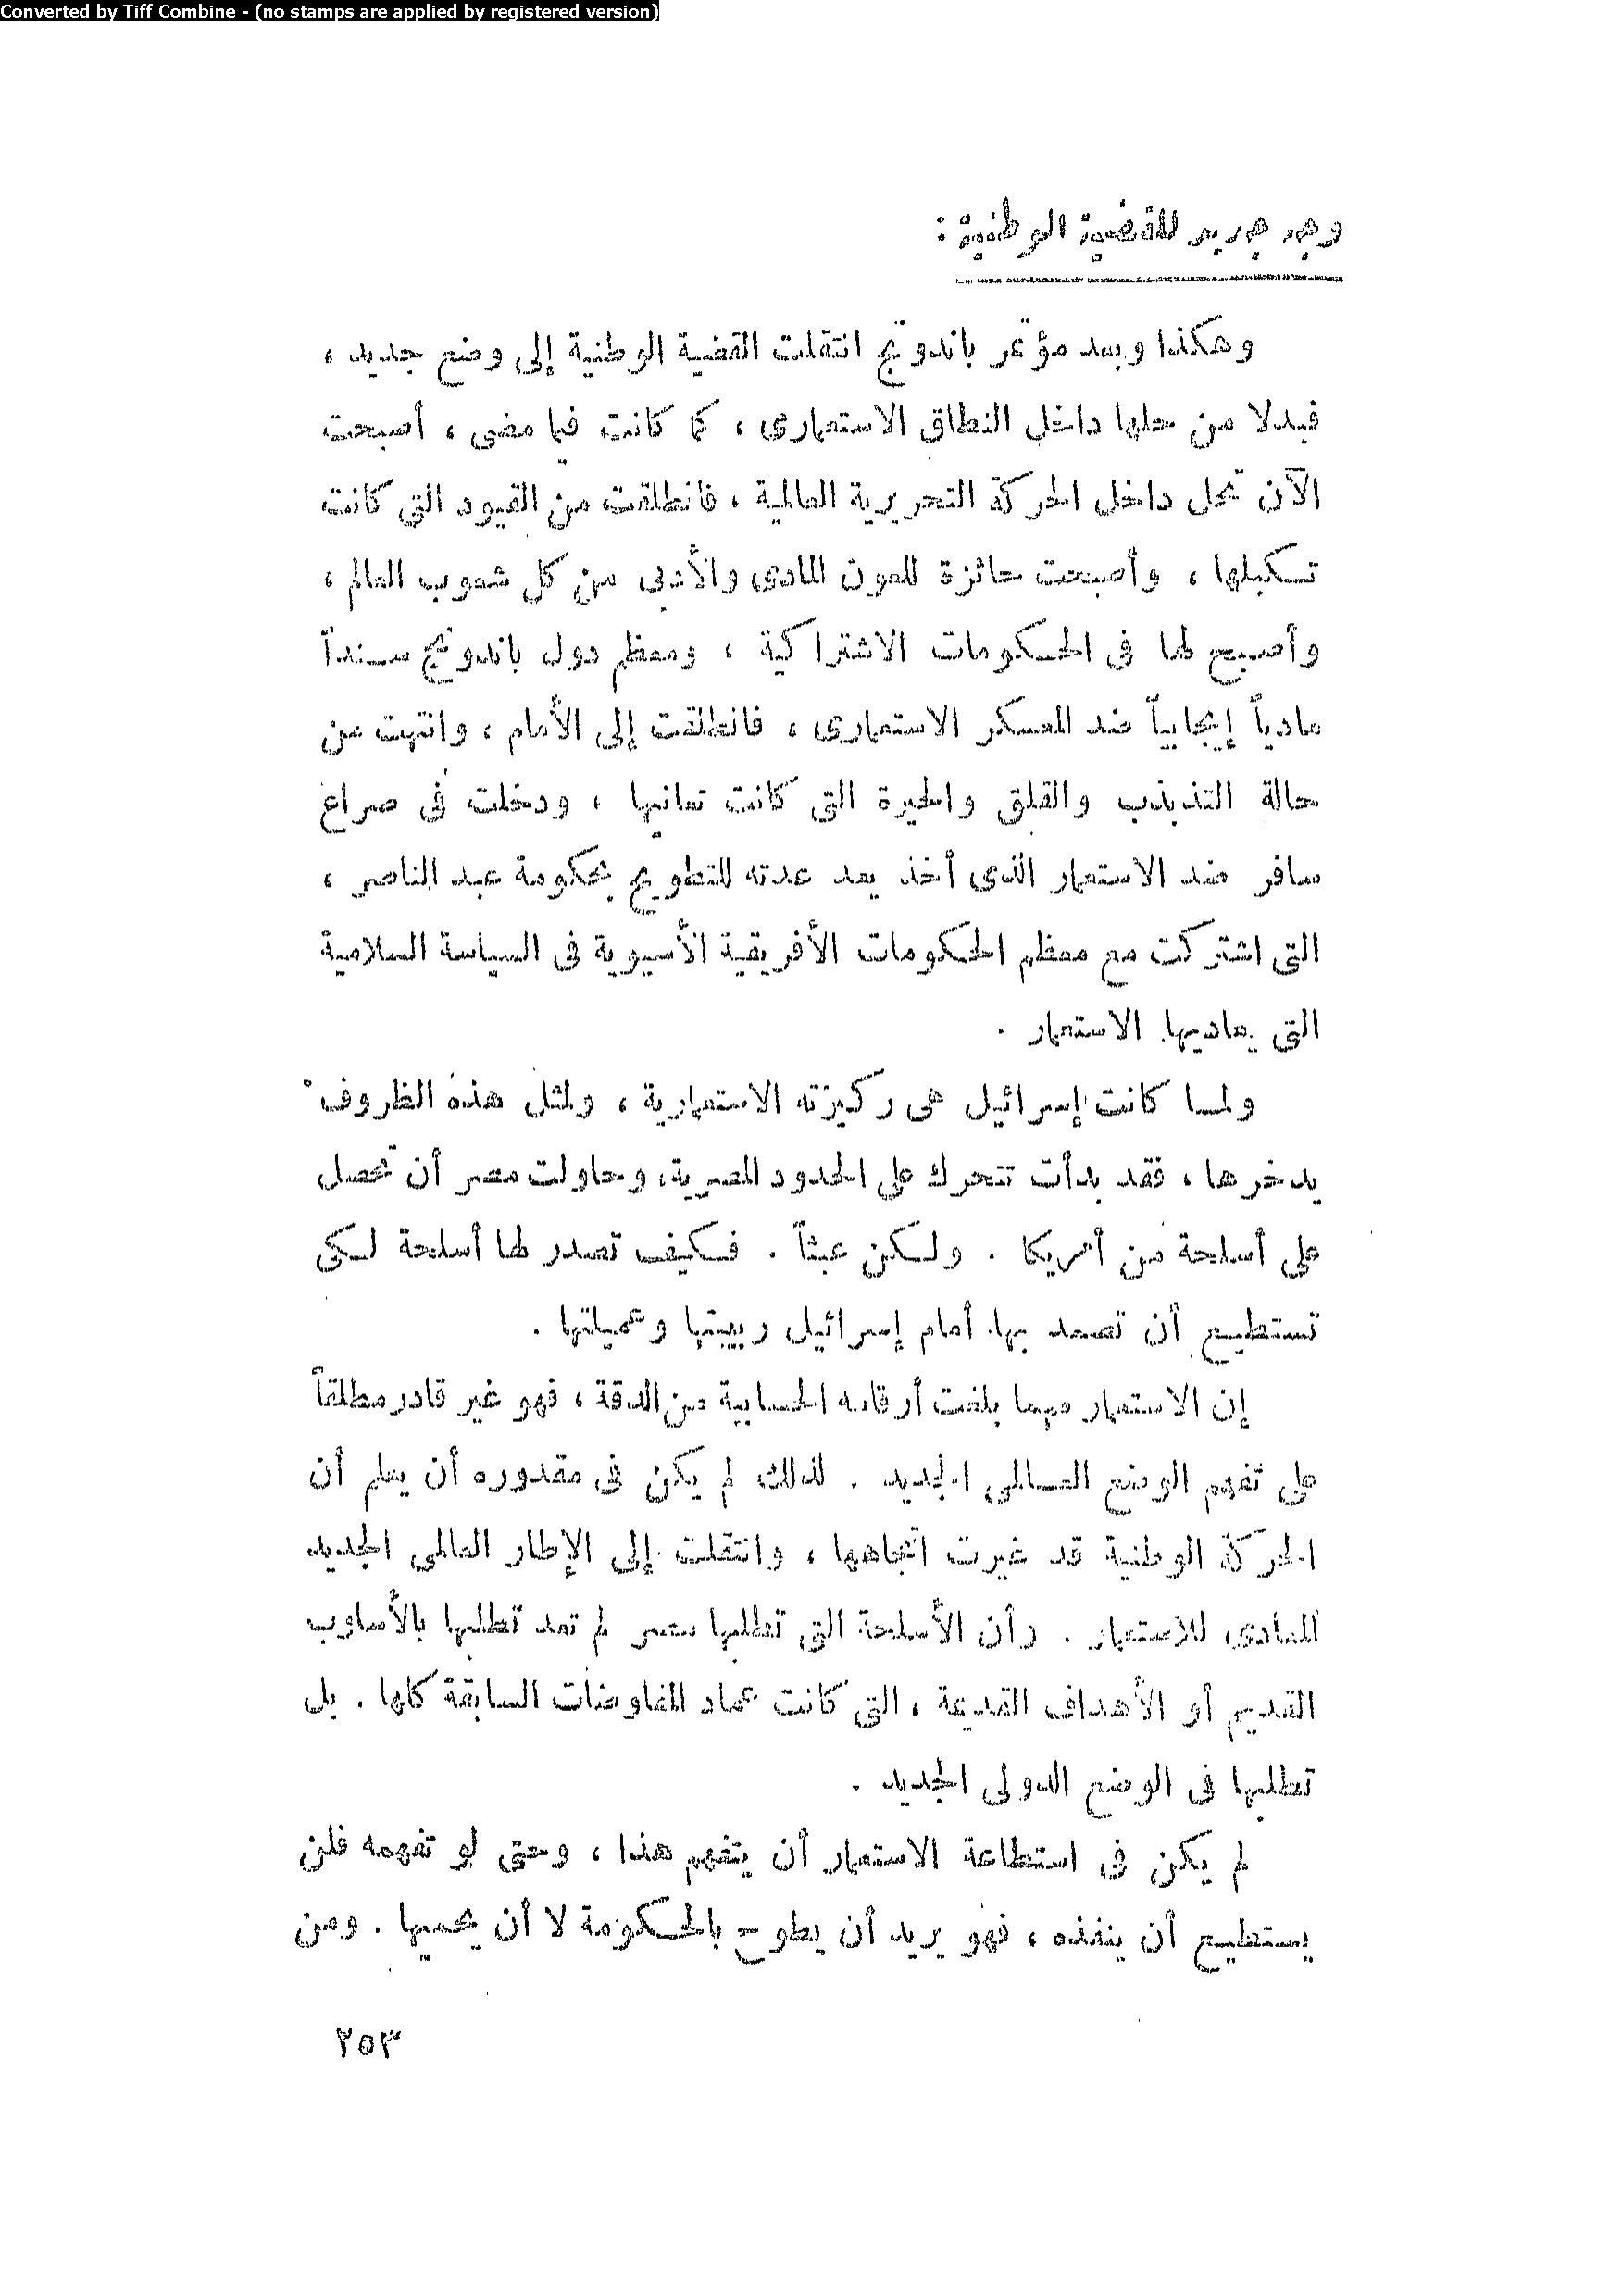 Converted by Tiff Combine - (no stamps are applied by registered version)
وجه جديد للقضية الوطنية :
وهكذا وبعد مؤتمر باندونج انتقلت القضية الوطنية إلى وضع جديد ،
فبدلا من حلها داخل النطاق الاستعمارى ، كما كانت فيما مضى ، أصبحت
الآن تحل داخل الحركة التحريرية العالمية ، فانطلقت من القيود التى كانت
تكبلها ، وأصبحت حائزة للعون المادى والأدبى من كل شعوب العالم ،
وأصبح لها فى الحكومات الاشتراكية ، ومعظم دول باندونج سنداً
مادياً إيجابياً ضد المعسكر الاستعمارى ، فانطلقت إلى الأمام ، وانتهت من
حالة التذبذب والقلق والحيرة التى كانت تعانيها ، ودخلت فى صراع
سافر ضد الاستعمار الذى أخذ يعد عدته للتطويح بحكومة عبد الناصر ،
التى اشتركت مع معظم الحكومات الأفريقية الأسيوية فى السياسة السلامية
التى يعاديها الاستعمار .
ولما كانت إسرائيل هى ركيزته الاستعمارية ، ولمثل هذه الظروف
يدخرها ، فقد بدأت تتحرك على الحدود المصرية ، وحاولت مصر أن تحصل
على أسلحة من أمريكا . ولكن عبثاً . فكيف تصدر لها أسلحة لكى
تستطيع أن تصمد بها أمام إسرائيل ربيبتها وعميلتها .
إن الاستعمار مهما بلغت أرقامه الحسابية من الدقة ، فهو غير قادر مطلقاً
على تفهم الوضع العالمى الجديد . لذلك لم يكن فى مقدوره أن يعلم أن
الحركة الوطنية قد غيرت اتجاهها ، وانتقلت إلى الإطار العالمى الجديد
المعادى للاستعمار . وأن الأسلحة التى تطلبها مصر لم تعد تطلبها بالأسلوب
القديم أو الأهداف القديمة ، التى كانت عماد المفاوضات السابقة كلها . بل
تطلبها فى الوضع الدولى الجديد .
لم يكن فى استطاعة الاستعمار أن يتفهم هذا ، وحتى لو تفهمه فلن
يستطيع أن ينفذه ، فهو يريد أن يطوح بالحكومة لا أن يحميها . ومن
٢٥٣